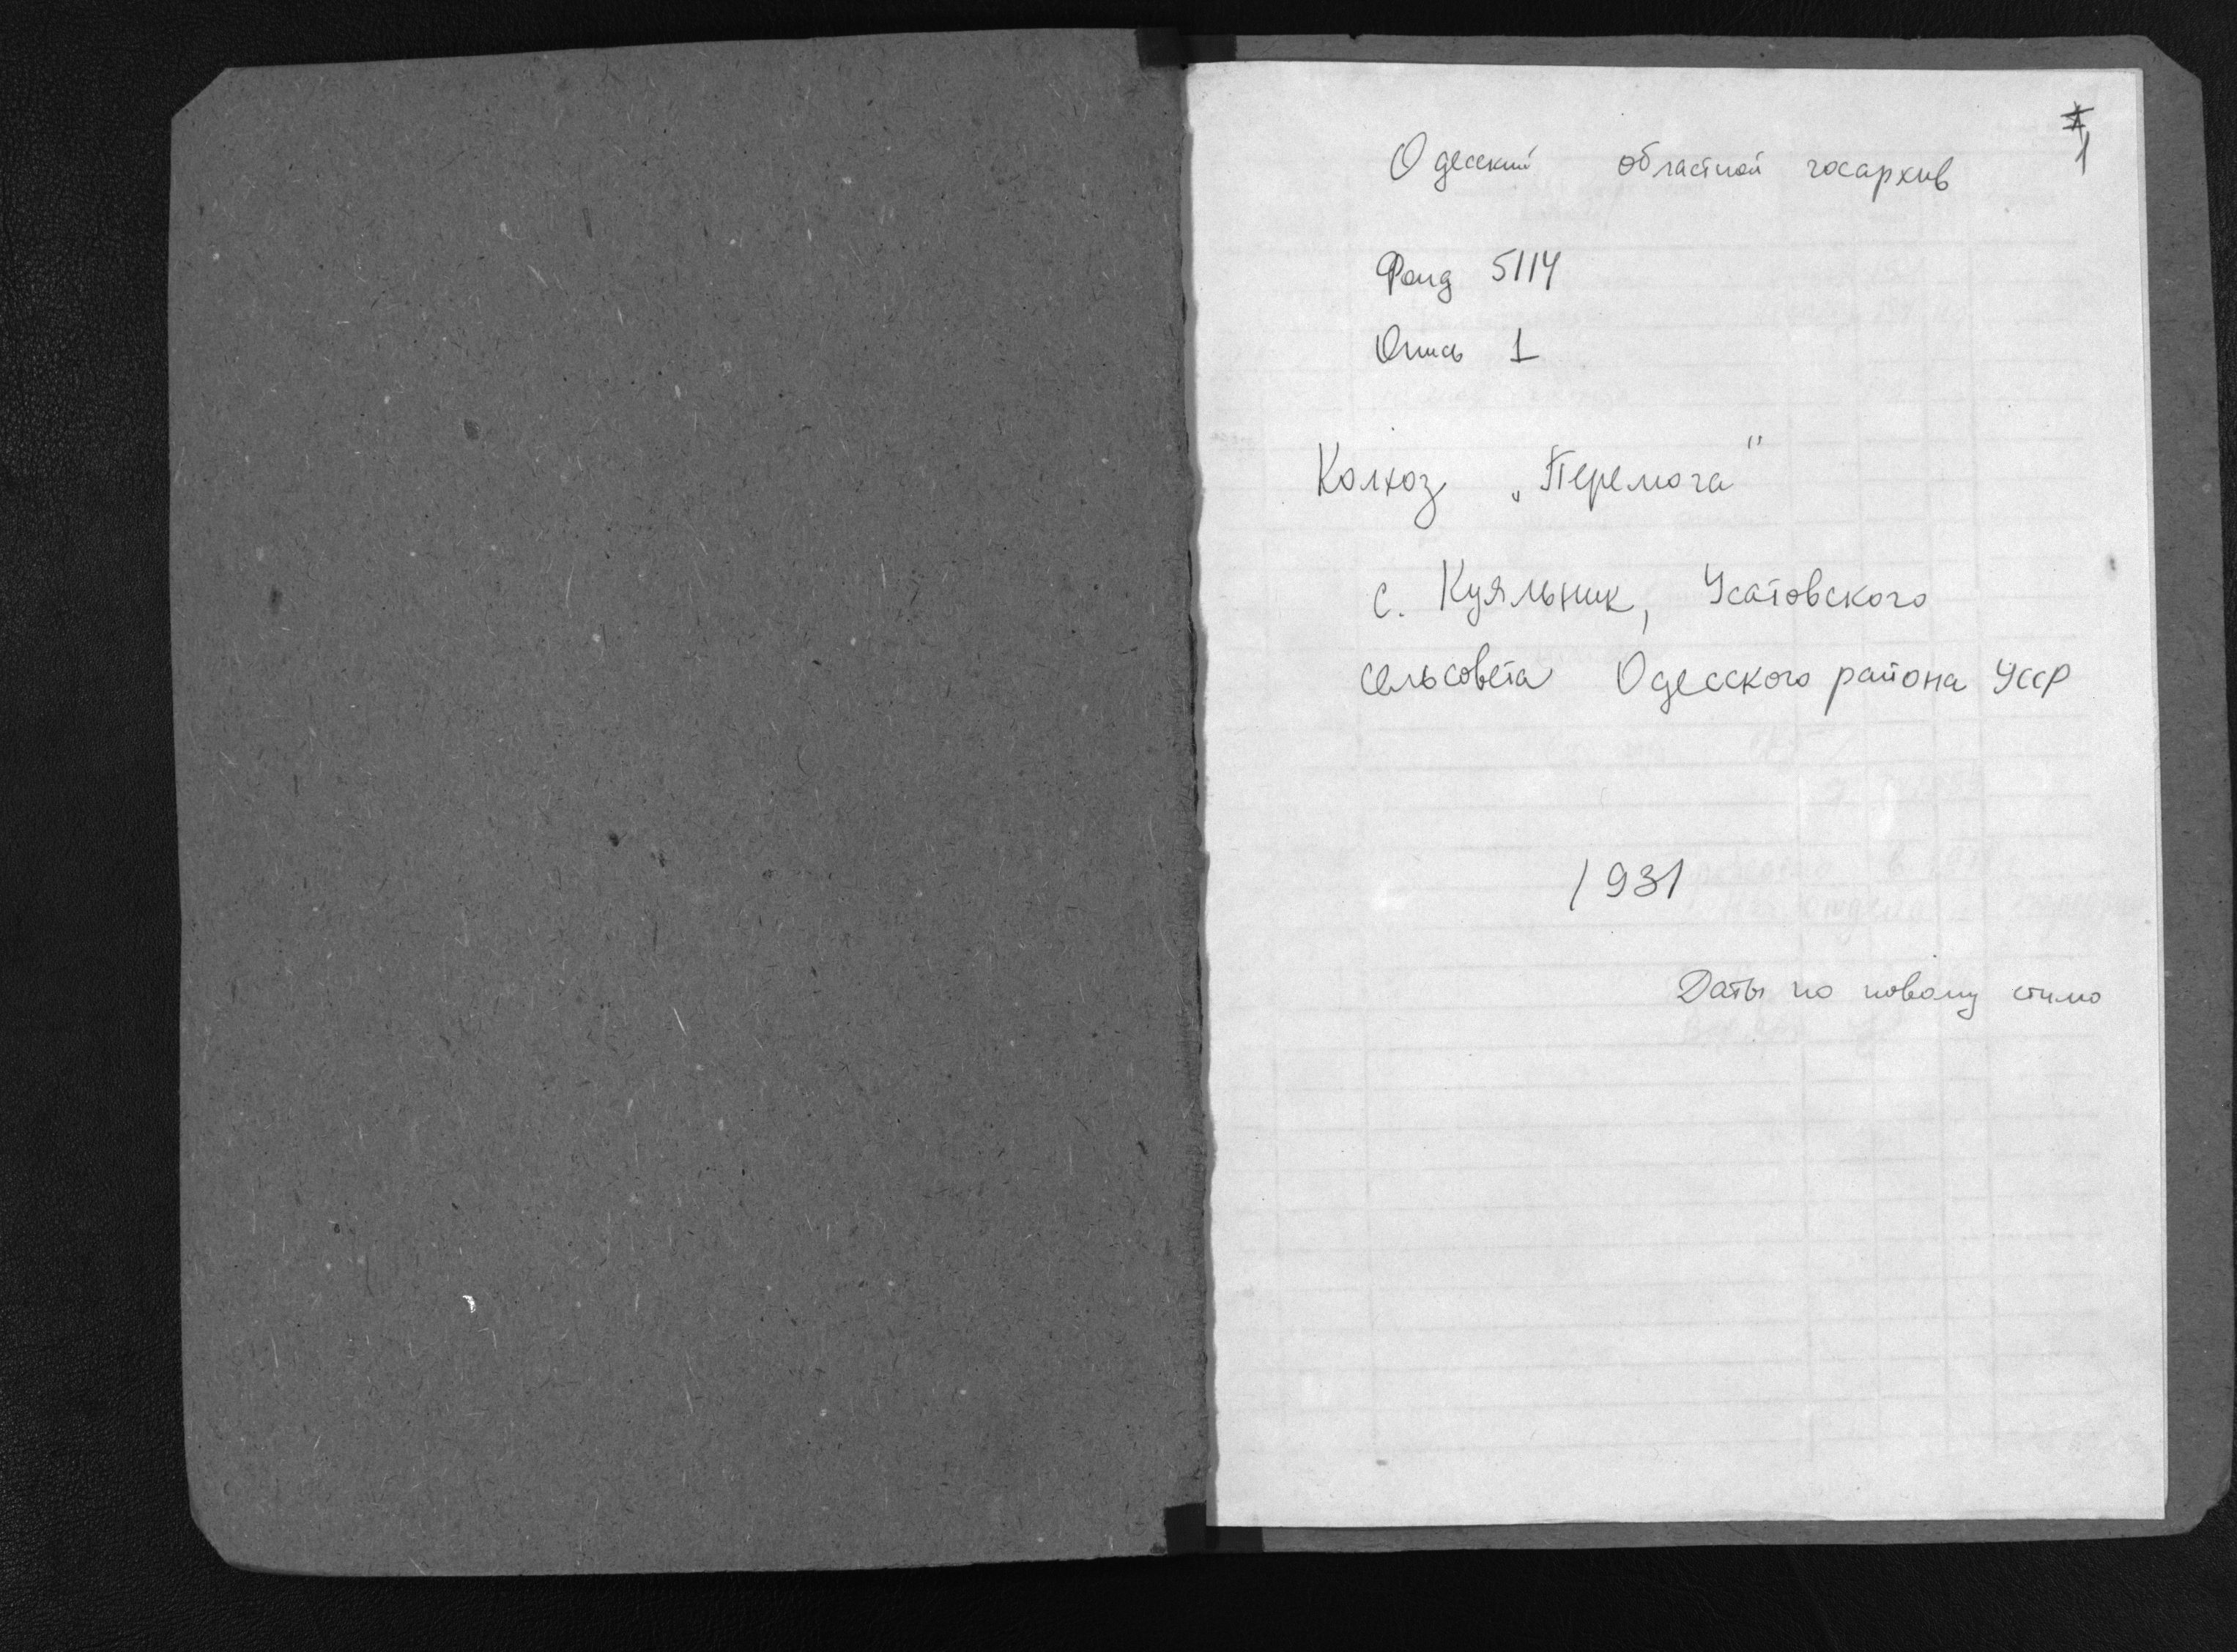 1
Одесский областной госархив
Фонд 5114
Опись 1
Колхоз „Перемога"
с. Куяльник, Усатовского
сельсовета Одесского района УССР
1931
Даты по новому стилю